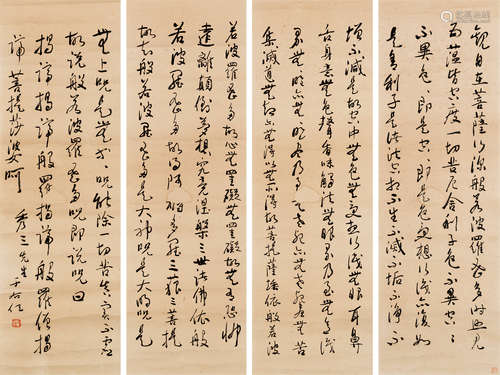 觀自在菩薩行深般若波羅蜜多時照見
五蘊皆空度一切苦厄舍利子色不異空空
不異色色即是空空即是色受想行識亦復如
是舍利子是諸法空相不生不滅不垢不淨不
增不減是故空中無色無受想行識無眼耳鼻
舌身意無色聲香味觸法無眼界乃至無意識
界無無明亦無無明盡乃至無老死亦無老死盡無苦
集滅道無智亦無得以無所得故菩提薩埵依般若波
若波羅蜜多故心無罣礙無罣礙故無有恐怖
遠離顛倒夢想究竟涅槃三世諸佛依般
若波羅蜜多故得阿耨多羅三藐三菩提
故知般若波羅蜜多是大神咒是大明咒是
無上咒是無等等咒能除一切苦真實不虛
故說般若波羅蜜多咒即說咒曰
揭諦揭諦般羅揭諦般羅僧揭
諦菩提莎婆訶
秀三先生 于右任